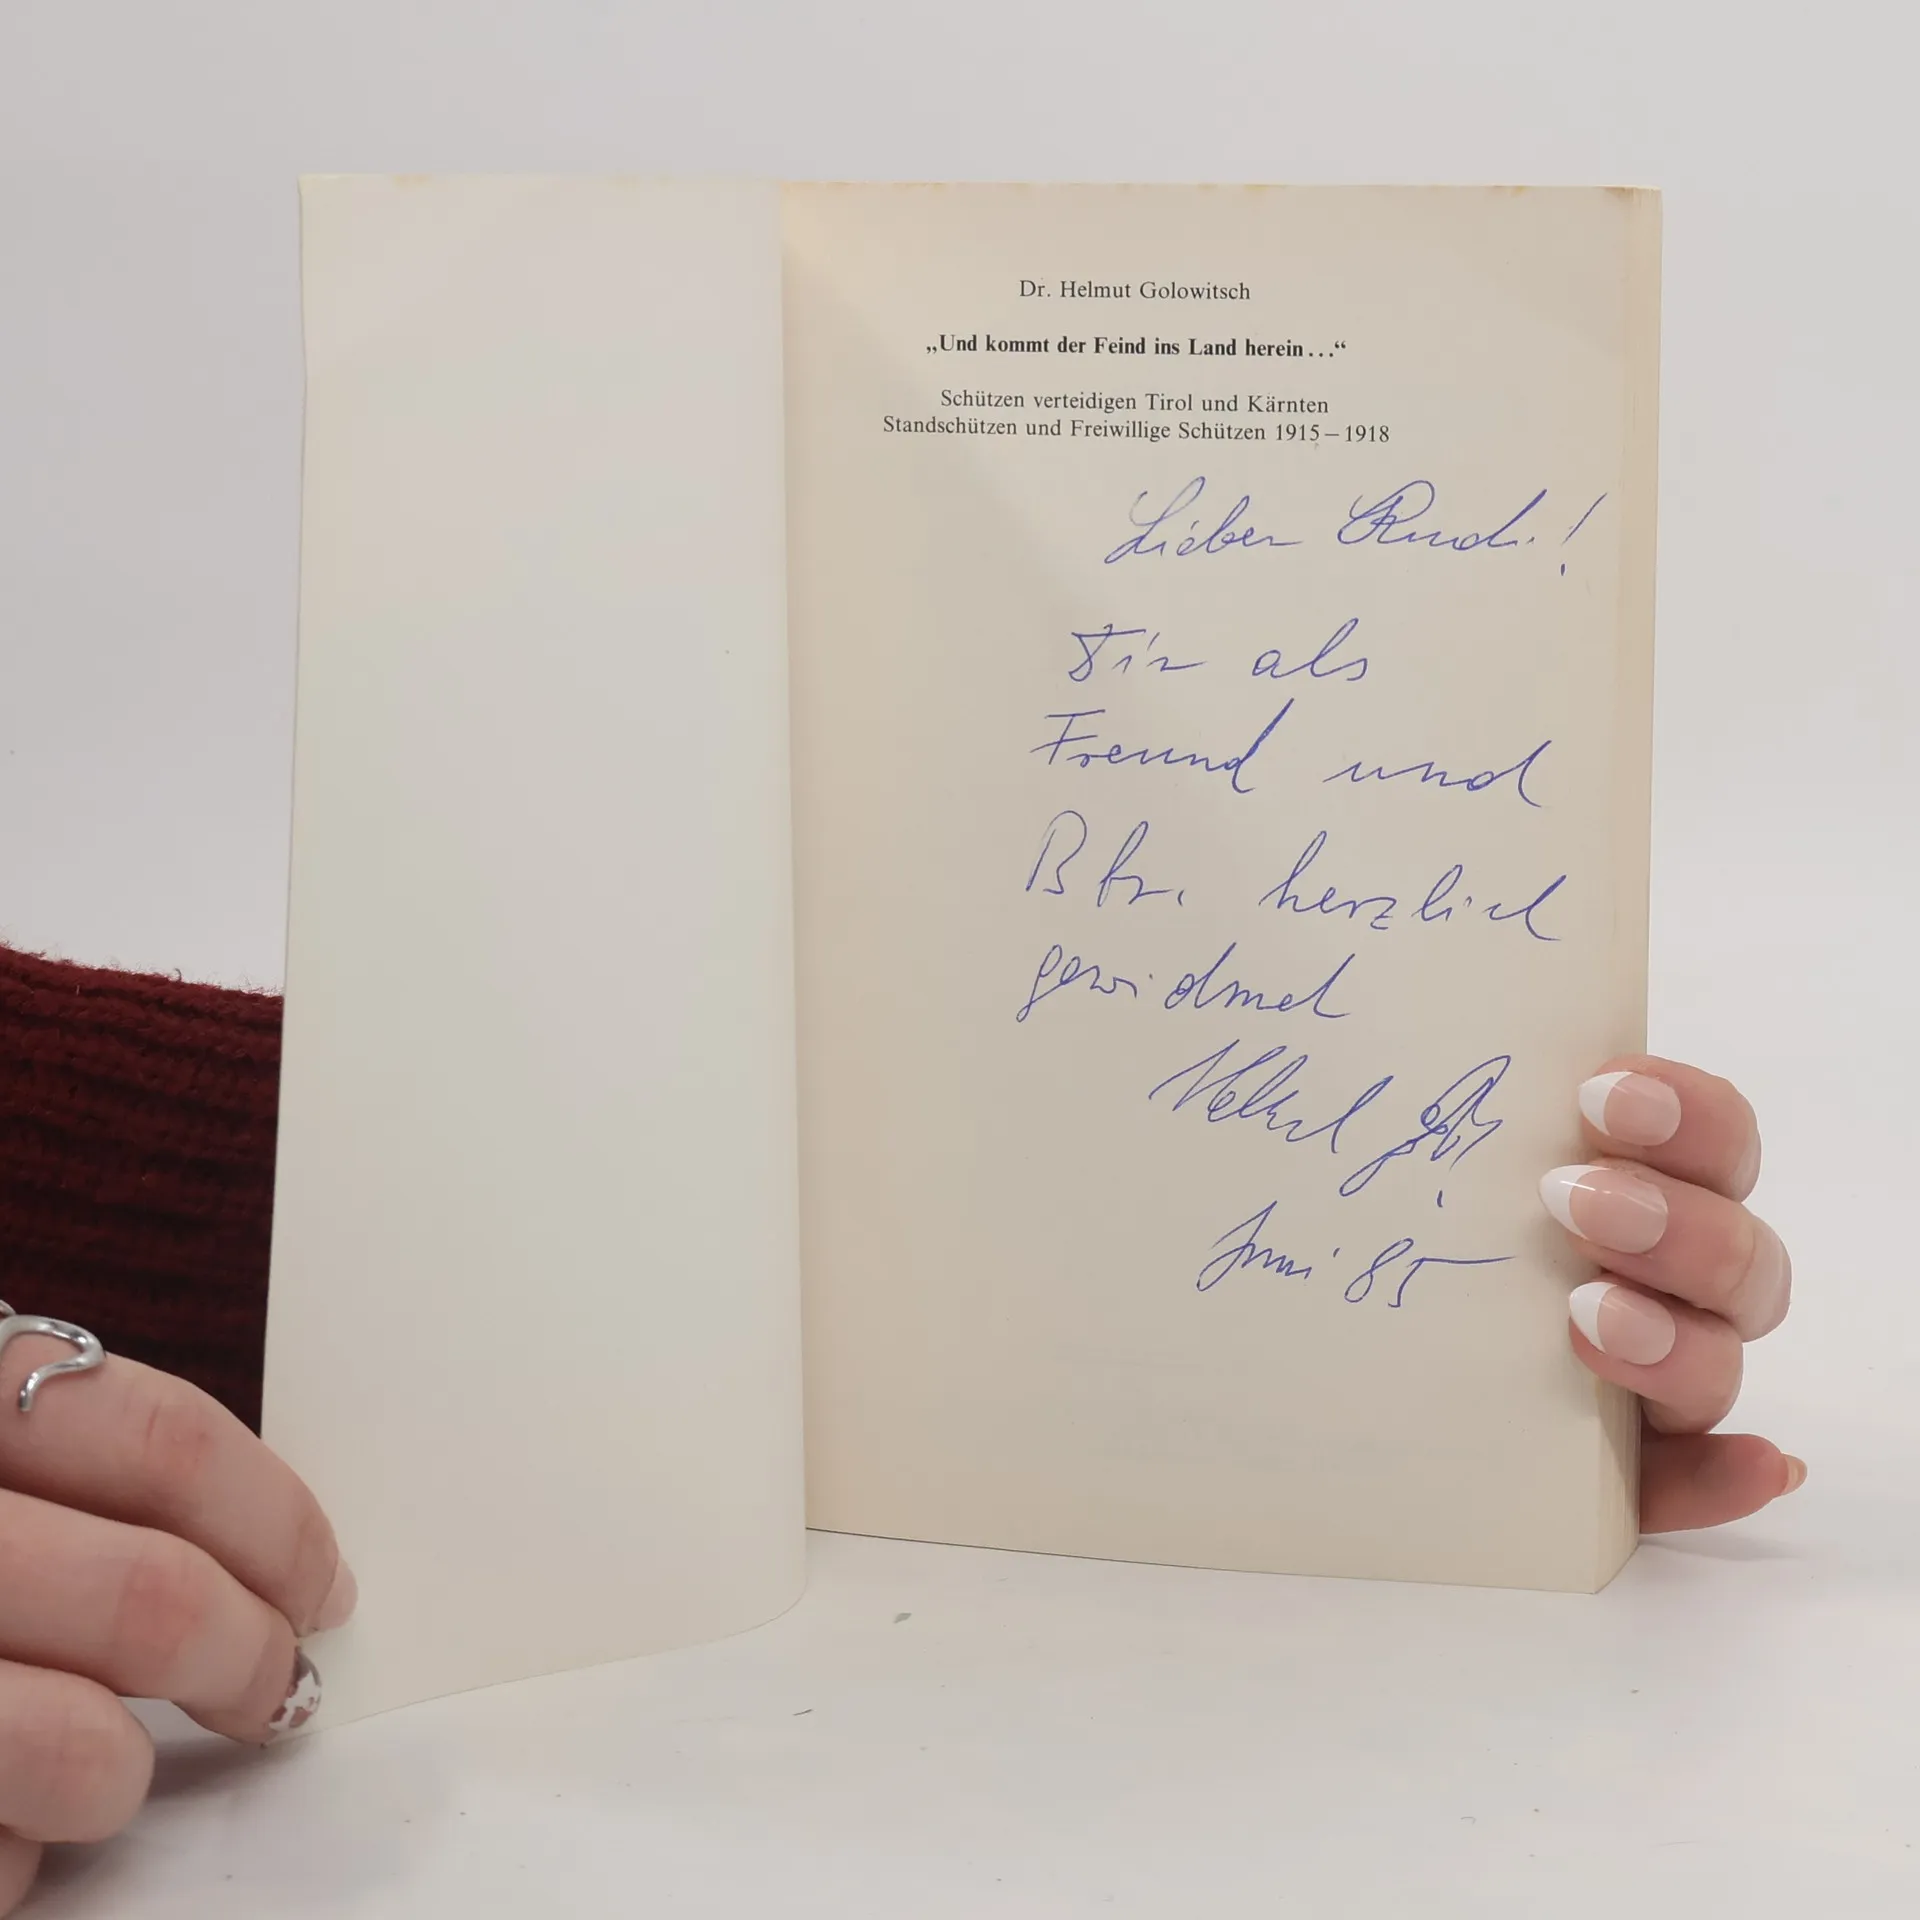 Dr. Helmut Golowitsch
„Und kommt der Feind ins Land herein...“
Schützen verteidigen Tirol und Kärnten
Standschützen und Freiwillige Schützen 1915–1918
Lieber Rudi!
Dir als
Freund und
Bbr. herzlich
gewidmet
Juni 85